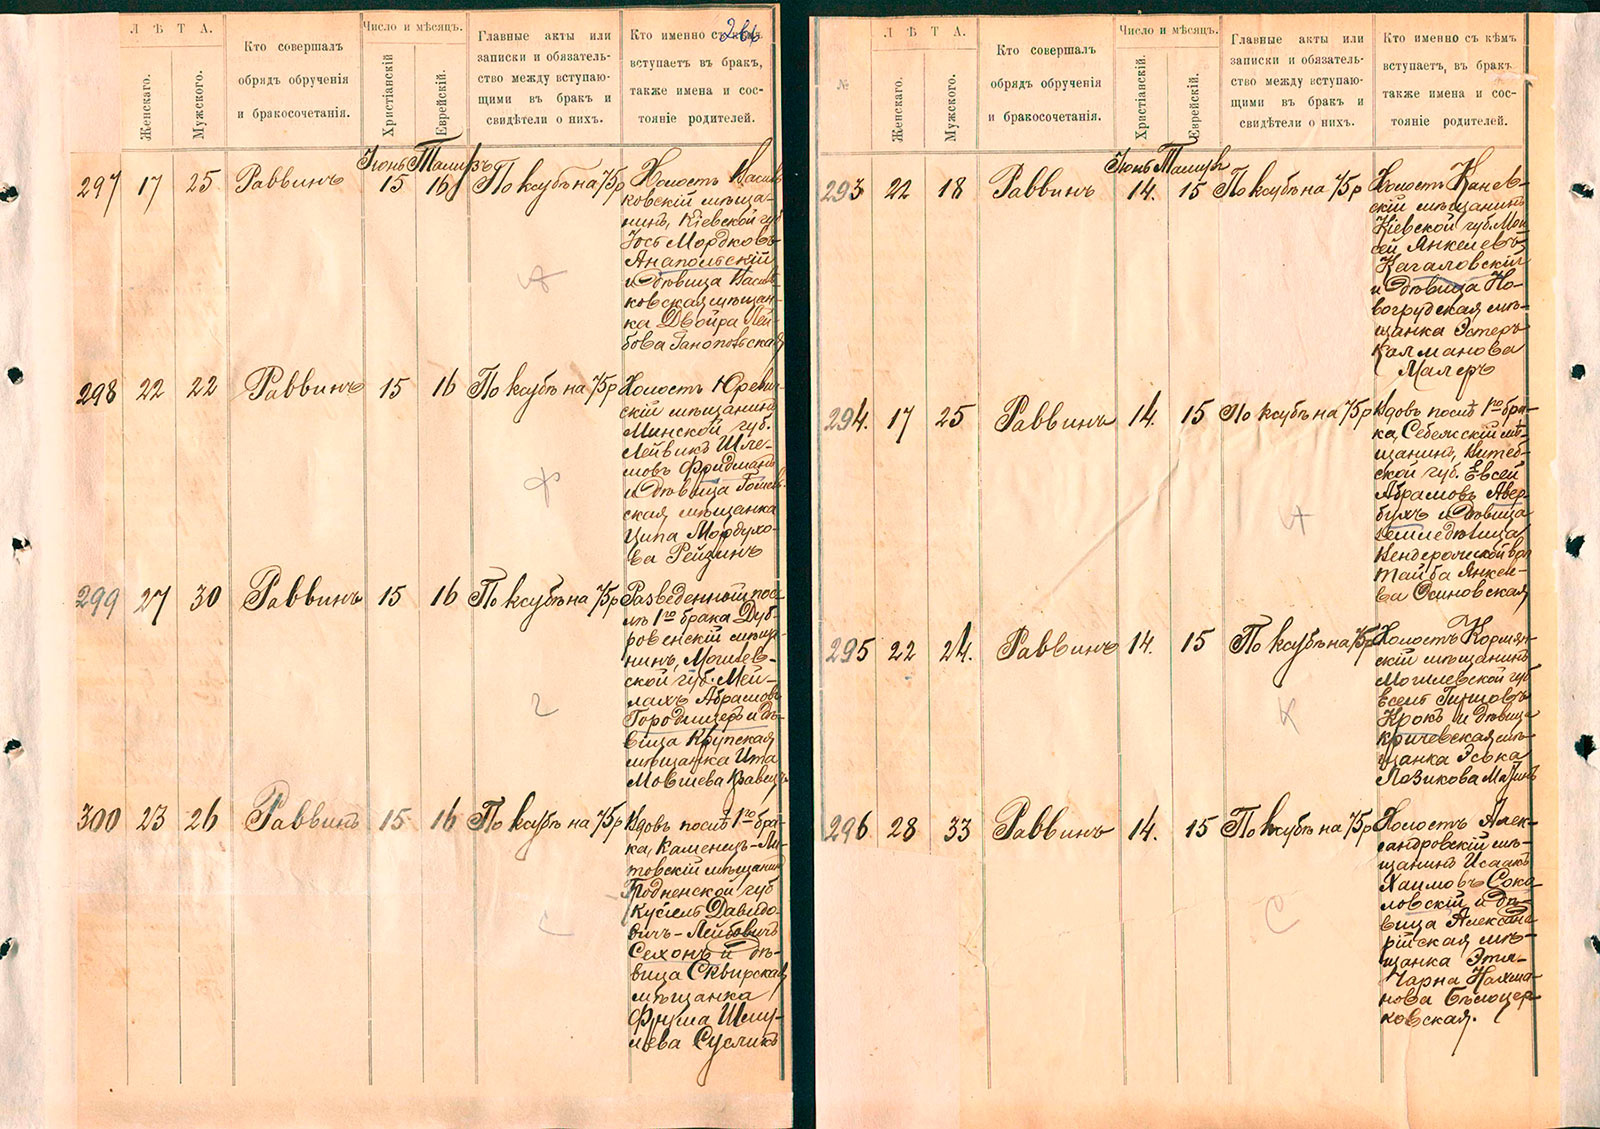 Л Ѣ Т А.
Женскаго.
Мужского.
Кто совершалъ
обрядъ обрученія
и бракосочетанія.
Число и мѣсяцъ.
Христіанскій
Еврейскій.
Главные акты или
записки и обязатель-
ство между вступаю-
щими въ бракъ и
свидѣтели о нихъ.
Кто именно съ кѣмъ
вступаетъ въ бракъ,
также имена и сос-
тояніе родителей.
266
Іюнь Тамузъ
297 17 25 Раввинъ 15 16 По ксубѣ на 75р
Холостъ Василь-
ковскій мѣща-
нинъ, Кіевской губ
Іось Мордковъ
Анапольскій
и дѣвица Василь-
ковская мѣщан-
ка Двойра Лей-
бова Ганопольская
298 22 22 Раввинъ 15 16 По ксубѣ на 75р
Холостъ
скій мѣщанинъ
Минской губ.
Лейвикъ Шле-
мовъ Фридманъ
и дѣвица Гомель-
ская мѣщанка
Ципа Мордухо-
ва Рейзинъ
299 27 30 Раввинъ 15 16 По ксубѣ на 75р
Разведенный пос-
лѣ 1го брака Дуб-
ровенскій мѣща-
нинъ, Могилев-
ской губ. Мей-
лахъ Абрамовъ
Городищеръ и дѣ-
вица Крупская
мѣщанка Ита
Мовшева Кравецъ
300 23 26 Раввинъ 15 16 По ксубѣ на 75р
Вдовъ послѣ 1го бра-
ка, Каменецъ-Ли-
товскій мѣщанинъ
Гродненской губ
Кусіель Давидо-
вичъ-Лейбовичъ
Сехонъ и дѣ-
вица Сквирская
мѣщанка
Фрума Шму-
лева Сусликъ
№
Л Ѣ Т А.
Женскаго.
Мужского.
Кто совершалъ
обрядъ обрученія
и бракосочетанія.
Число и мѣсяцъ.
Христіанскій.
Еврейскій.
Главные акты или
записки и обязатель-
ство между вступаю-
щими въ бракъ и
свидѣтели о нихъ.
Кто именно съ кѣмъ
вступаетъ, въ бракъ
также имена и сос-
тояніе родителей.
Іюнь Тамузъ
293 22 18 Раввинъ 14. 15 По ксубѣ на 75р
Холостъ Канев-
скій мѣщанинъ
Кіевской губ. Мой-
сей Янкелевъ
Кагаловскій
и дѣвица Но-
вогрудская мѣ-
щанка Эстеръ
Калманова
Малеръ
294. 17 25 Раввинъ 14. 15 По ксубѣ на 75р
Вдовъ послѣ 1го бра-
ка, Себежскій мѣ-
щанинъ, Витеб-
ской губ. Евсей
Абрамовъ Авер-
бухъ и дѣвица
земледѣлица
вол
Тайба Янкеле-
ва Осиновская
295 22 24. Раввинъ 14. 15 По ксубѣ на 75р
Холостъ Кормян-
скій мѣщанинъ
Могилевской губ
Есель Гиршовъ
Крокъ и дѣвица
Кричевская мѣ-
щанка Эська
Лазикова
296 28 33 Раввинъ 14. 15 По ксубѣ на 75р
Холостъ Алек-
сандровскій мѣ-
щанинъ Исаакъ
Хаимовъ Сока-
ловскій и дѣ-
вица Александ-
рійская мѣ-
щанка Этля-
Чарна Нахма-
нова Бѣлоцер-
ковская.